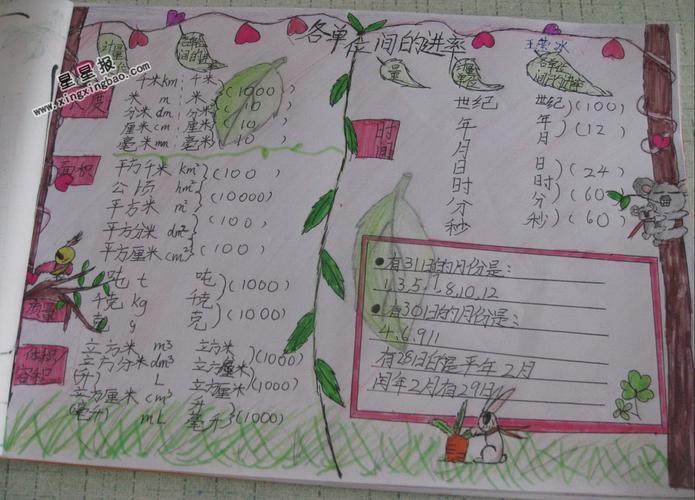 各单位间的进率
王莹冰
星星报
www.ixingxingbao.com
计量
间的进率
千米km 千米
米 m 米 (1000)
分米 dm 分米 (10)
厘米 cm 厘米 (10)
毫米 mm 毫米 (10)
面积
平方千米 km²
公顷 hm² (100)
平方米 m² (10000)
平方分米 dm² (100)
平方厘米 cm² (100)
质量
吨 t 吨
千克 kg 千克 (1000)
克 g 克 (1000)
体积
容积
立方米 m³ 立方米
立方分米 dm³ 立方厘米 (1000)
(升) L 立方厘米
立方厘米 cm³ 升
(毫升) mL 毫升 (1000)
各单位
间的进率
时间
世纪 世纪 (100)
年 年
月 月 (12)
日 日
时 时 (24)
分 分 (60)
秒 秒 (60)
有31日的月份是:
1.3.5.7.8.10.12
有30日的月份是:
4.6.911
有28日的是平年2月
闰年2月有29日